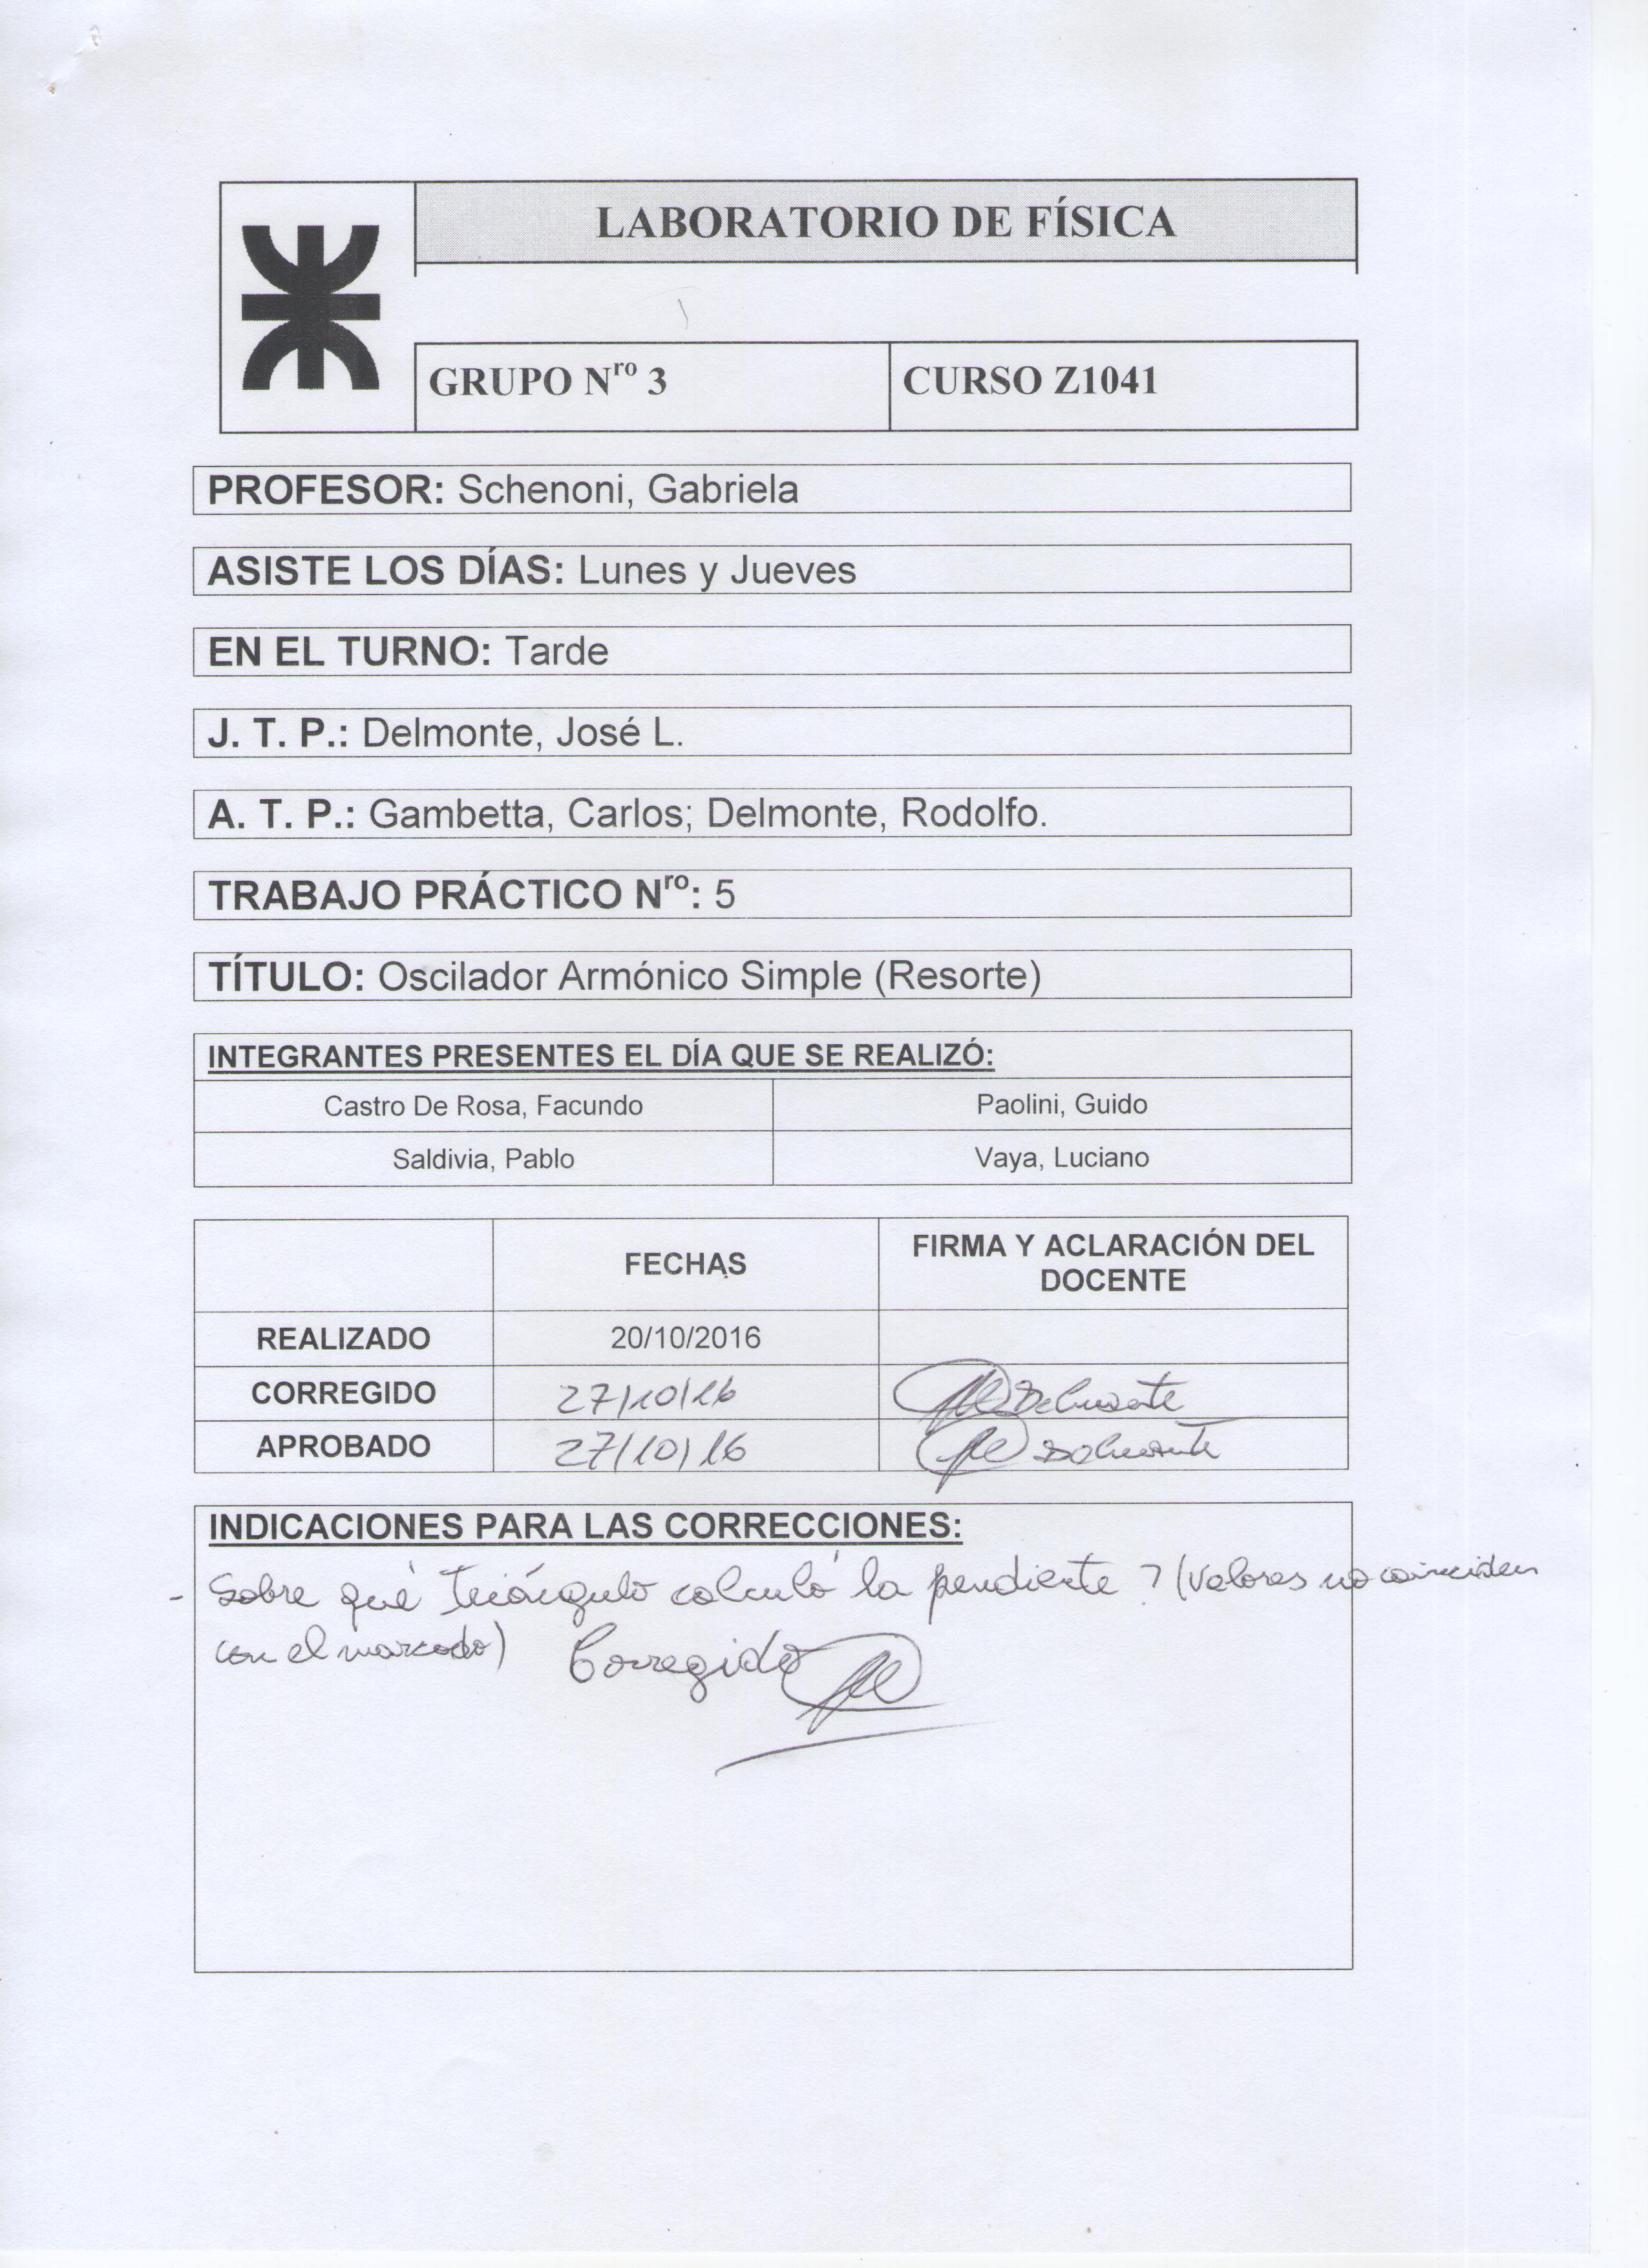 LABORATORIO DE FÍSICA
GRUPO Nro 3
CURSO Z1041
PROFESOR: Schenoni, Gabriela
ASISTE LOS DÍAS: Lunes y Jueves
EN EL TURNO: Tarde
J. T. P.: Delmonte, José L.
A. T. P.: Gambetta, Carlos; Delmonte, Rodolfo.
TRABAJO PRÁCTICO Nro: 5
TÍTULO: Oscilador Armónico Simple (Resorte)
INTEGRANTES PRESENTES EL DÍA QUE SE REALIZÓ:
Castro De Rosa, Facundo
Paolini, Guido
Saldivia, Pablo
Vaya, Luciano
FECHAS
FIRMA Y ACLARACIÓN DEL
DOCENTE
REALIZADO
20/10/2016
CORREGIDO
27/10/16
Delmonte
APROBADO
27/10/16
Delmonte
INDICACIONES PARA LAS CORRECCIONES:
- Sobre qué triángulo calculó la pendiente ? (Valores no coinciden
con el marcado)
Corregido